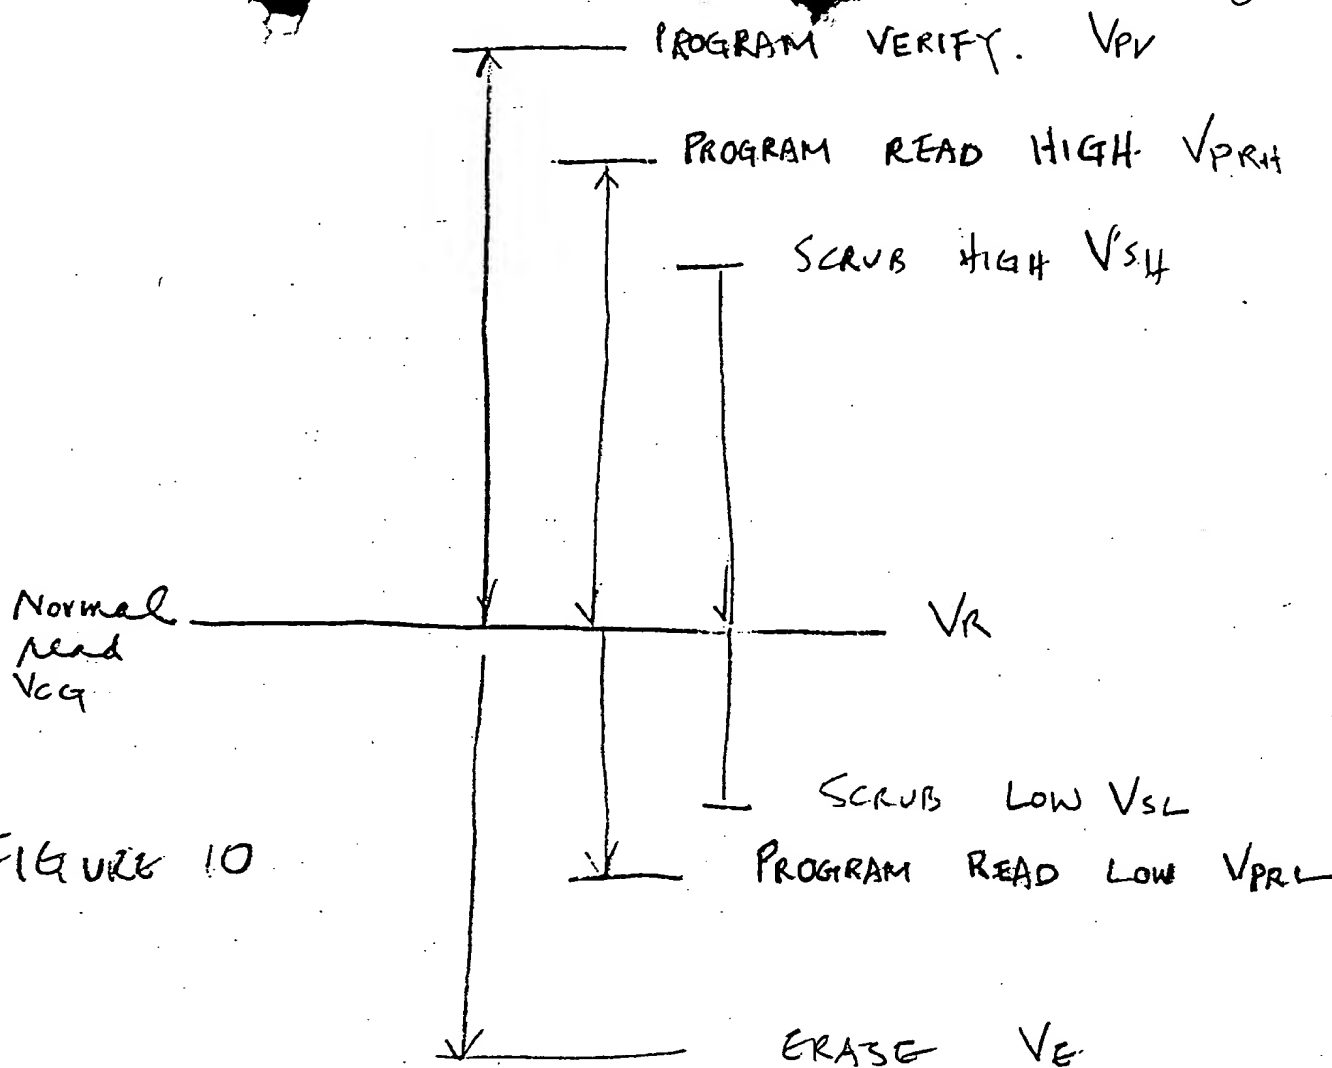 PROGRAM VERIFY. VPV
PROGRAM READ HIGH VPRH
SCRUB HIGH VSH
Normal
read
VCG
VR
SCRUB LOW VSL
FIGURE 10
PROGRAM READ LOW VPRL
ERASE VE